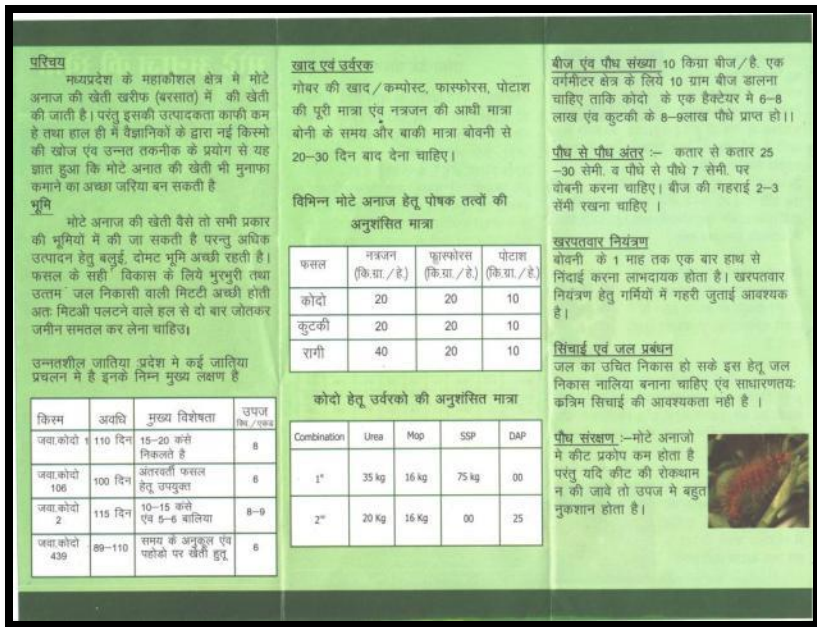 परिचय
मध्यप्रदेश के महाकौशल क्षेत्र मे मोटे
अनाज की खेती खरीफ (बरसात) में की खेती
की जाती है। परंतु इसकी उत्पादकता काफी कम
हे तथा हाल ही में वैज्ञानिकों के द्वारा नई किस्मो
की खोज एंव उन्नत तकनीक के प्रयोग से यह
ज्ञात हुआ कि मोटे अनात की खेती भी मुनाफा
कमाने का अच्छा जरिया बन सकती है
भूमि
मोटे अनाज की खेती वैसे तो सभी प्रकार
की भूमियों में की जा सकती है परन्तु अधिक
उत्पादन हेतु बलुई, दोमट भूमि अच्छी रहती है।
फसल के सही विकास के लिये भुरभुरी तथा
उत्तम जल निकासी वाली मिटटी अच्छी होती
अतः मिटअी पलटने वाले हल से दो बार जोतकर
जमीन समतल कर लेना चाहिउ।
उन्नतशील जातिया :प्रदेश मे कई जातिया
प्रचलन मे है इनके निम्न मुख्य लक्षण है
किस्म अवधि मुख्य विशेषता उपज
क्वि./एकड
जवा.कोदो 1 110 दिन 15–20 कंसे
निकलते है 8
जवा.कोदो
106 100 दिन अंतरवर्ती फसल
हेतू उपयुक्त 6
जवा.कोदो
2 115 दिन 10–15 कंसे
एंव 5–6 बालिया 8–9
जवा.कोदो
439 89–110 समय के अनुकूल एंव
पहोडो पर खेती हुतू 6
खाद एवं उर्वरक
गोबर की खाद/कम्पोस्ट, फास्फोरस, पोटाश
की पूरी मात्रा एंव नत्रजन की आधी मात्रा
बोनी के समय और बाकी मात्रा बोवनी से
20–30 दिन बाद देना चाहिए।
विभिन्न मोटे अनाज हेतू पोषक तत्वों की
अनुशंसित मात्रा
फसल नत्रजन फास्फोरस पोटाश
(कि.ग्रा./हे.) (कि.ग्रा./हे.) (कि.ग्रा./हे.)
कोदो 20 20 10
कुटकी 20 20 10
रागी 40 20 10
कोदो हेतू उर्वरको की अनुशंसित मात्रा
Combination Urea Mop SSP DAP
1" 35 kg 16 kg 75 kg 00
2" 20 Kg 16 Kg 00 25
बीज एंव पौध संख्या 10 किग्रा बीज/है. एक
वर्गमीटर क्षेत्र के लिये 10 ग्राम बीज डालना
चाहिए ताकि कोदो के एक हैक्टेयर मे 6–8
लाख एंव कुटकी के 8–9लाख पौधे प्राप्त हो।।
पौध से पौध अंतर :– कतार से कतार 25
–30 सेमी. व पौधे से पौधे 7 सेमी. पर
वोबनी करना चाहिए। बीज की गहराई 2–3
सेंमी रखना चाहिए ।
खरपतवार नियंत्रण
बोवनी के 1 माह तक एक बार हाथ से
निंदाई करना लाभदायक होता है। खरपतवार
नियंत्रण हेतू गर्मियों में गहरी जुताई आवश्यक
है।
सिंचाई एवं जल प्रबंधन
जल का उचित निकास हो सके इस हेतू जल
निकास नालिया बनाना चाहिए एंव साधारणतयः
कत्रिम सिचाई की आवश्यकता नही है ।
पौध संरक्षण :–मोटे अनाजो
मे कीट प्रकोप कम होता है
परंतु यदि कीट की रोकथाम
न की जावे तो उपज मे बहुत
नुकशान होता है।